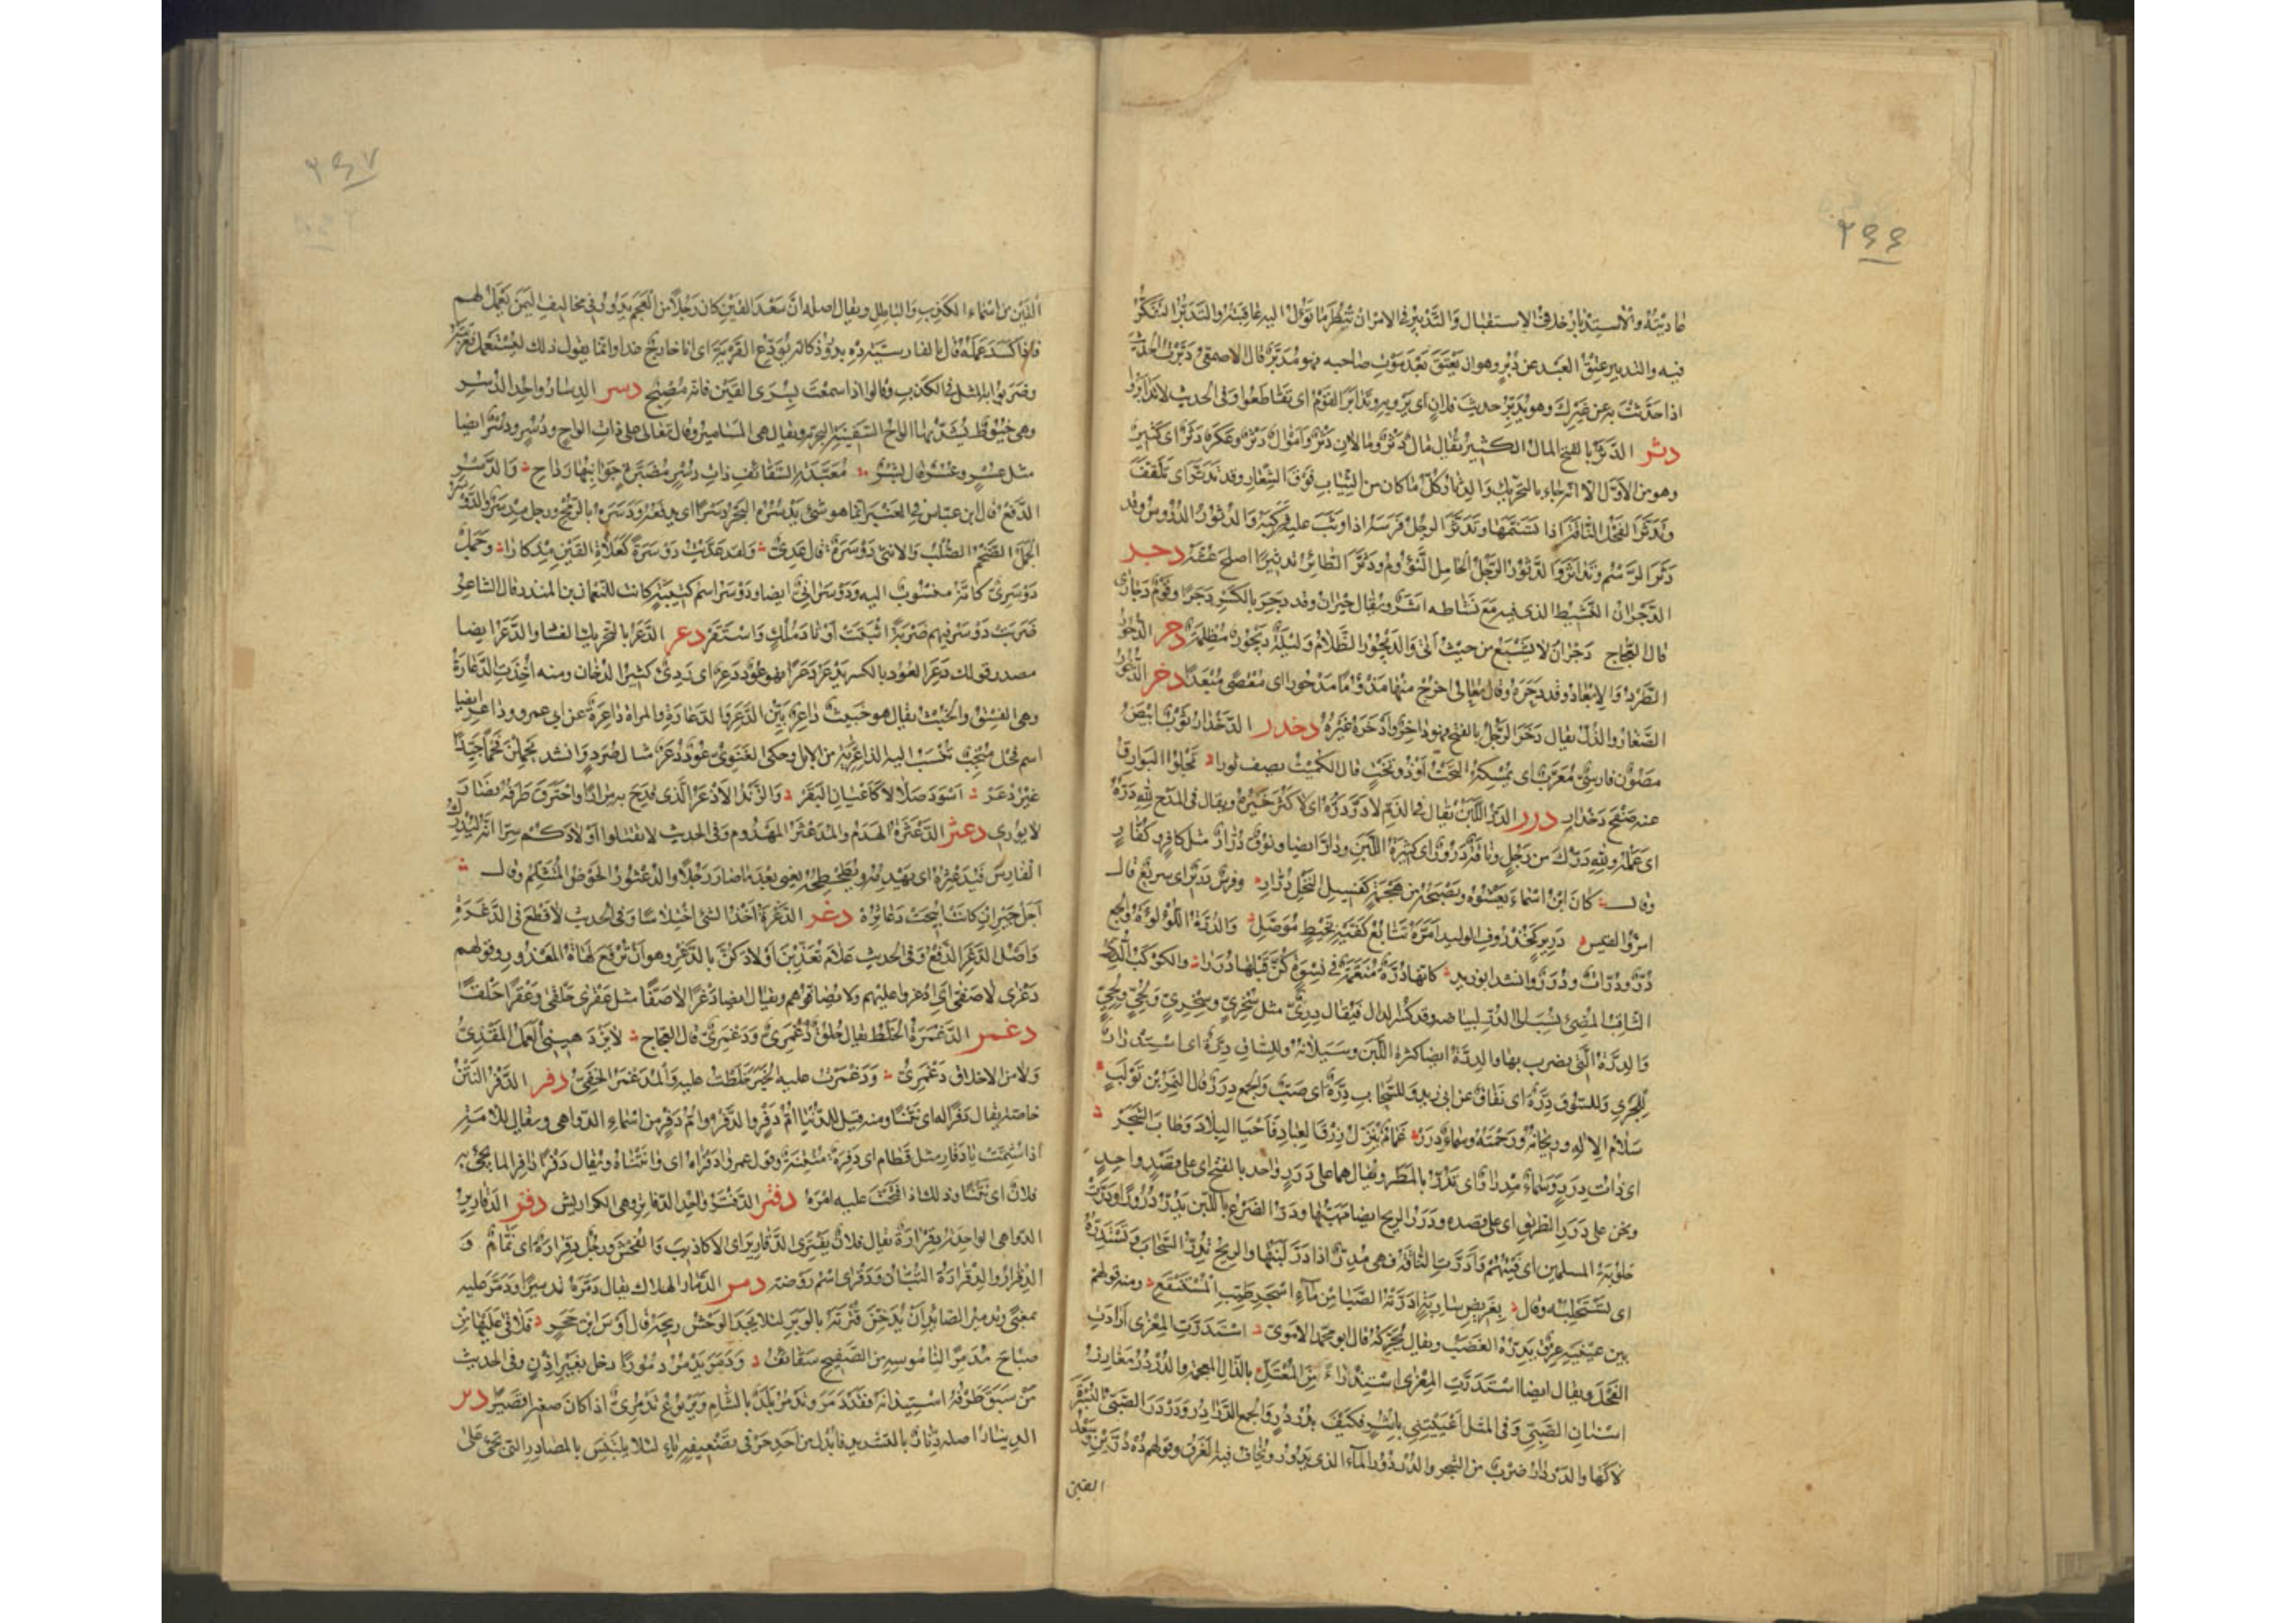 ٢٤٤
ما دبيته والاستدبار خلاف الاستقبال والتدبير في الامر ان تنظر ما تؤول اليه عاقبته والتدبر التفكر
فيه والتدبير عتق العبد عن دبر وهو ان يعتق بعد موت صاحبه فهو مدبر قال الاصمعي دبرت الحديث
اذا حدثت به عن غيرك وهو يدبر حديث فلان اى يرويه وتدابر القوم اى تقاطعوا وفى الحديث لا تدابروا
دثر الدثر بالفتح المال الكثير يقال مال دثر ومالان دثر واموال دثر وعكر دثر اى كثير
وهو من الاول الا انه جاء بالتحريك والدثار كل ما كان من الثياب فوق الشعار وقد تدثر اى تلفف
وتدثر الفحل الناقة اذا تسنمها وتدثر الرجل فرسه اذا وثب عليه فركبه والدثور الدروس وقد
دثر الرسم وتداثر والدثور الرجل الخامل النؤوم ودثر الطائر تدثيرا اصلح عشه دجر
الدجران النشيط الذى فيه مع نشاطه اشر ويقال حيران وقد دجر بالكسر دجرا وقوم دجارى
قال العجاج دجران لا يشبع من حيث اتى والديجور الظلام وليلة ديجور مظلمة دحر الدحور
الطرد والابعاد وقد دحره وقال تعالى اخرج منها مذؤما مدحورا اى مقصى مبعدا دخر الدخور
الصغار والذل يقال دخر الرجل بالفتح فهو داخر وادخره غيره دخدر الدخدار ثوب ابيض
مصون فارسى معرب اى يمسكه التخت اوذو تخت قال الكميت يصف ثورا تجلو البوارق
عنه صفح دخدار درر الدر اللبن يقال فى الذم لا در دره اى لا كثر خيره ويقال فى المدح لله دره
اى عمله ولله درك من رجل وناقة درور اى كثيرة اللبن ودار ايضا ونوق درار مثل كافر وكفار
وقال كان ابن اسماء يعشوه ويصبحه من هجمة كفسيل النخل درار وفرس درير اى سريع قال
امرؤ القيس درير كخذروف الوليد امره تتابع كفيه بخيط موصل والدرة اللؤلؤة والجمع
در ودرات ودرر وانشد ابو زيد كانها درة منعمة فى نسوة كن قبلها دررا والكوكب الدرى
الثاقب المضىء نسب الى الدر لبياضه وقد تكسر الدال فيقال درى مثل سخرى وسخرى ولجى ولجى
والدرة التى يضرب بها والدرة ايضا كثرة اللبن وسيلانه وللساق درة اى استدرار
للجرى وللسوق درة اى نفاق عن ابى زيد وللسحاب درة اى صب والجمع درر قال النمر بن تولب
سلام الاله وريحانه ورحمته وسماء درر غمام ينزل رزق العباد فاحيا البلاد وطاب الشجر
اى ذات درر وسماء مدرار اى تدر بالمطر ويقال هما على درر واحد بالفتح اى على قصد واحد
ونحن على درر الطريق اى على قصده ودرر الريح ايضا مهبها ودر الضرع باللبن يدر درورا ودرت
حلوبة المسلمين اى فيئهم وادرت الناقة فهى مدر اذا در لبنها والريح تدر السحاب وتستدره
اى تستحلبه وقال بغريض سارية ادرته الصبا من ماء اسجر طيب المستنقع ومنه قولهم
بين عينيه عرق يدره الغضب ويقال يحركه قال ابو محمد الاموى استدرت المعزى ارادت
الفحل ويقال ايضا استذرت المعزى استذراء من المعتل بالذال المعجمة والدردر مغارز
اسنان الصبى وفى المثل اعييتنى باشر فكيف بدردر والجمع الدرادر ودردر الصبى البسرة
لاكها والدردار ضرب من الشجر والدردور الماء الذى يدور ويخاف فيه الغرق وقولهم ده درين وسعد
القين
٢٤٧
القين من اسماء الكذب والباطل ويقال اصله ان سعد القين كان رجلا من العجم يدور فى مخاليف اليمن يعمل لهم
فاذا كسد عمله قال بالفارسية ده بدرود كانه يودع القرية اى انا خارج غدا وانما يقول ذلك ليستعمل فعربته
وضربوا به المثل فى الكذب وقالوا اذا سمعت بسرى القين فانه مصبح دسر الدسار واحد الدسر
وهى خيوط تشد بها الواح السفينة البحر ويقال هى المسامير وقال تعالى على ذات الواح ودسر ودسر ايضا
مثل عسر وعسر قال بشر معبدة السقائف ذات دسر مضبرة جوانبها رداح والدسر
الدفع قال ابن عباس فى العنبر انما هو شىء يدسره البحر دسرا اى يدفعه ودسره بالرمح ورجل مدسر والدوسر
الجمل الضخم الصلب والانثى دوسرة قال عدى ولقد عديت دوسرة كعلاة القين مذكارا وجمل
دوسرى كانه منسوب اليه ودوسرانى ايضا ودوسر اسم كتيبة كانت للنعمان بن المنذر قال الشاعر
ضربت دوسر فيهم ضربة اثبتت اوتاد ملك واستقر دعر الدعر بالتحريك الفساد والدعر ايضا
مصدر قولك دعر العود بالكسر يدعر دعرا فهو عود دعر اى ردىء كثير الدخان ومنه اخذت الدعارة
وهى الفسق والخبث يقال هو خبيث داعر بين الدعر والدعارة والمراة داعرة عن ابى عمرو وداعر ايضا
اسم فحل منجب تنسب اليه الداعرية من الابل وحكى الغنوى عود دعر مثال صرد وانشد يحملن فحما جيدا
غير دعر اسود صلالا كاعيان البقر والزند الادعر الذى قدح به مرارا واحترق طرفه فصار
لا يورى دعثر الدعثرة الهدم والمدعثر المهدوم وفى الحديث لا تقتلوا اولادكم سرا انه ليدرك
الفارس فيدعثره اى يهدمه ويطحطحه يعنى بعد ما صار رجلا والدعثور الحوض المتثلم وقال
اجل جير ان كانت ابيحت دعاثره دغر الدغرة اخذ الشىء اختلاسا وفى الحديث لا قطع فى الدغرة
واصل الدغر الدفع وفى الحديث علام تعذبن اولادكن بالدغر وهو ان ترفع لهاة المعذور وقولهم
دغرى لا صفى اى ادغروا عليهم ولا تصافوهم ويقال ايضا دغرا لا صفا مثل عقرى حلقى وعقرا حلقا
دغمر الدغمرة الخلط يقال خلق دغمرى ودغمرى قال العجاج لا يزدهينى العمل المقذى
ولا من الاخلاق دغمرى ودغمرت عليه الخبر خلطت عليه والمدغمر الخفى دفر الدفر النتن
خاصة يقال دفرا له اى نتنا ومنه قيل للدنيا ام دفر والدفر وام دفر من اسماء الدواهى ويقال للامة
اذا شتمت يا دفار مثل قطام اى دفرة منتنة وقول عمر وادفراه اى وانتناه ويقال دفرا دافرا لما يجىء به
فلان اى نتنا وذلك اذا قبحت عليه امره دفتر الدفتر واحد الدفاتر وهى الكراريس دقر الدقارير
الدواهى الواحدة دقرارة يقال فلان يفترى الدقارير اى الاكاذيب والفحش ورجل دقرارة اى نمام و
الدقرار والدقرارة التبان ودقرى اسم روضة دمر الدمار الهلاك يقال دمره تدميرا ودمر عليه
بمعنى وتدمير الصائد ان يدخن قترته بالوبر لئلا يجد الوحش ريحه قال اوس بن حجر فلاقى عليها من
صباح مدمرا لناموسه من الصفيح سقائف ودمر يدمر دمورا دخل بغير اذن وفى الحديث
من سبق طرفه استيذانه فقد دمر وتدمر بلد بالشام ويربوع تدمرى اذا كان صغيرا قصيرا دنر
الدينار اصله دنار بالتشديد فابدل من احد حرفى تضعيفه ياء لئلا يلتبس بالمصادر التى تجىء على